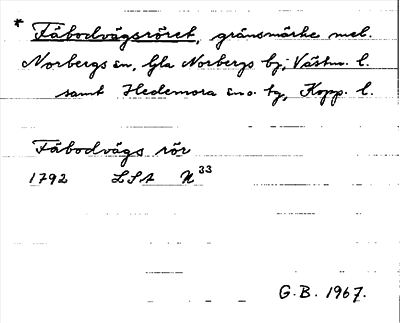 * Fäbodvägsröret, gränsmärke mel.
Norbergs sn, Gla Norbergs bg, Västm. l.
samt Hedemora sn o. tg, Kopp. l.
Fäbodvägs rör
1792 LSA N 33
G.B. 1967.